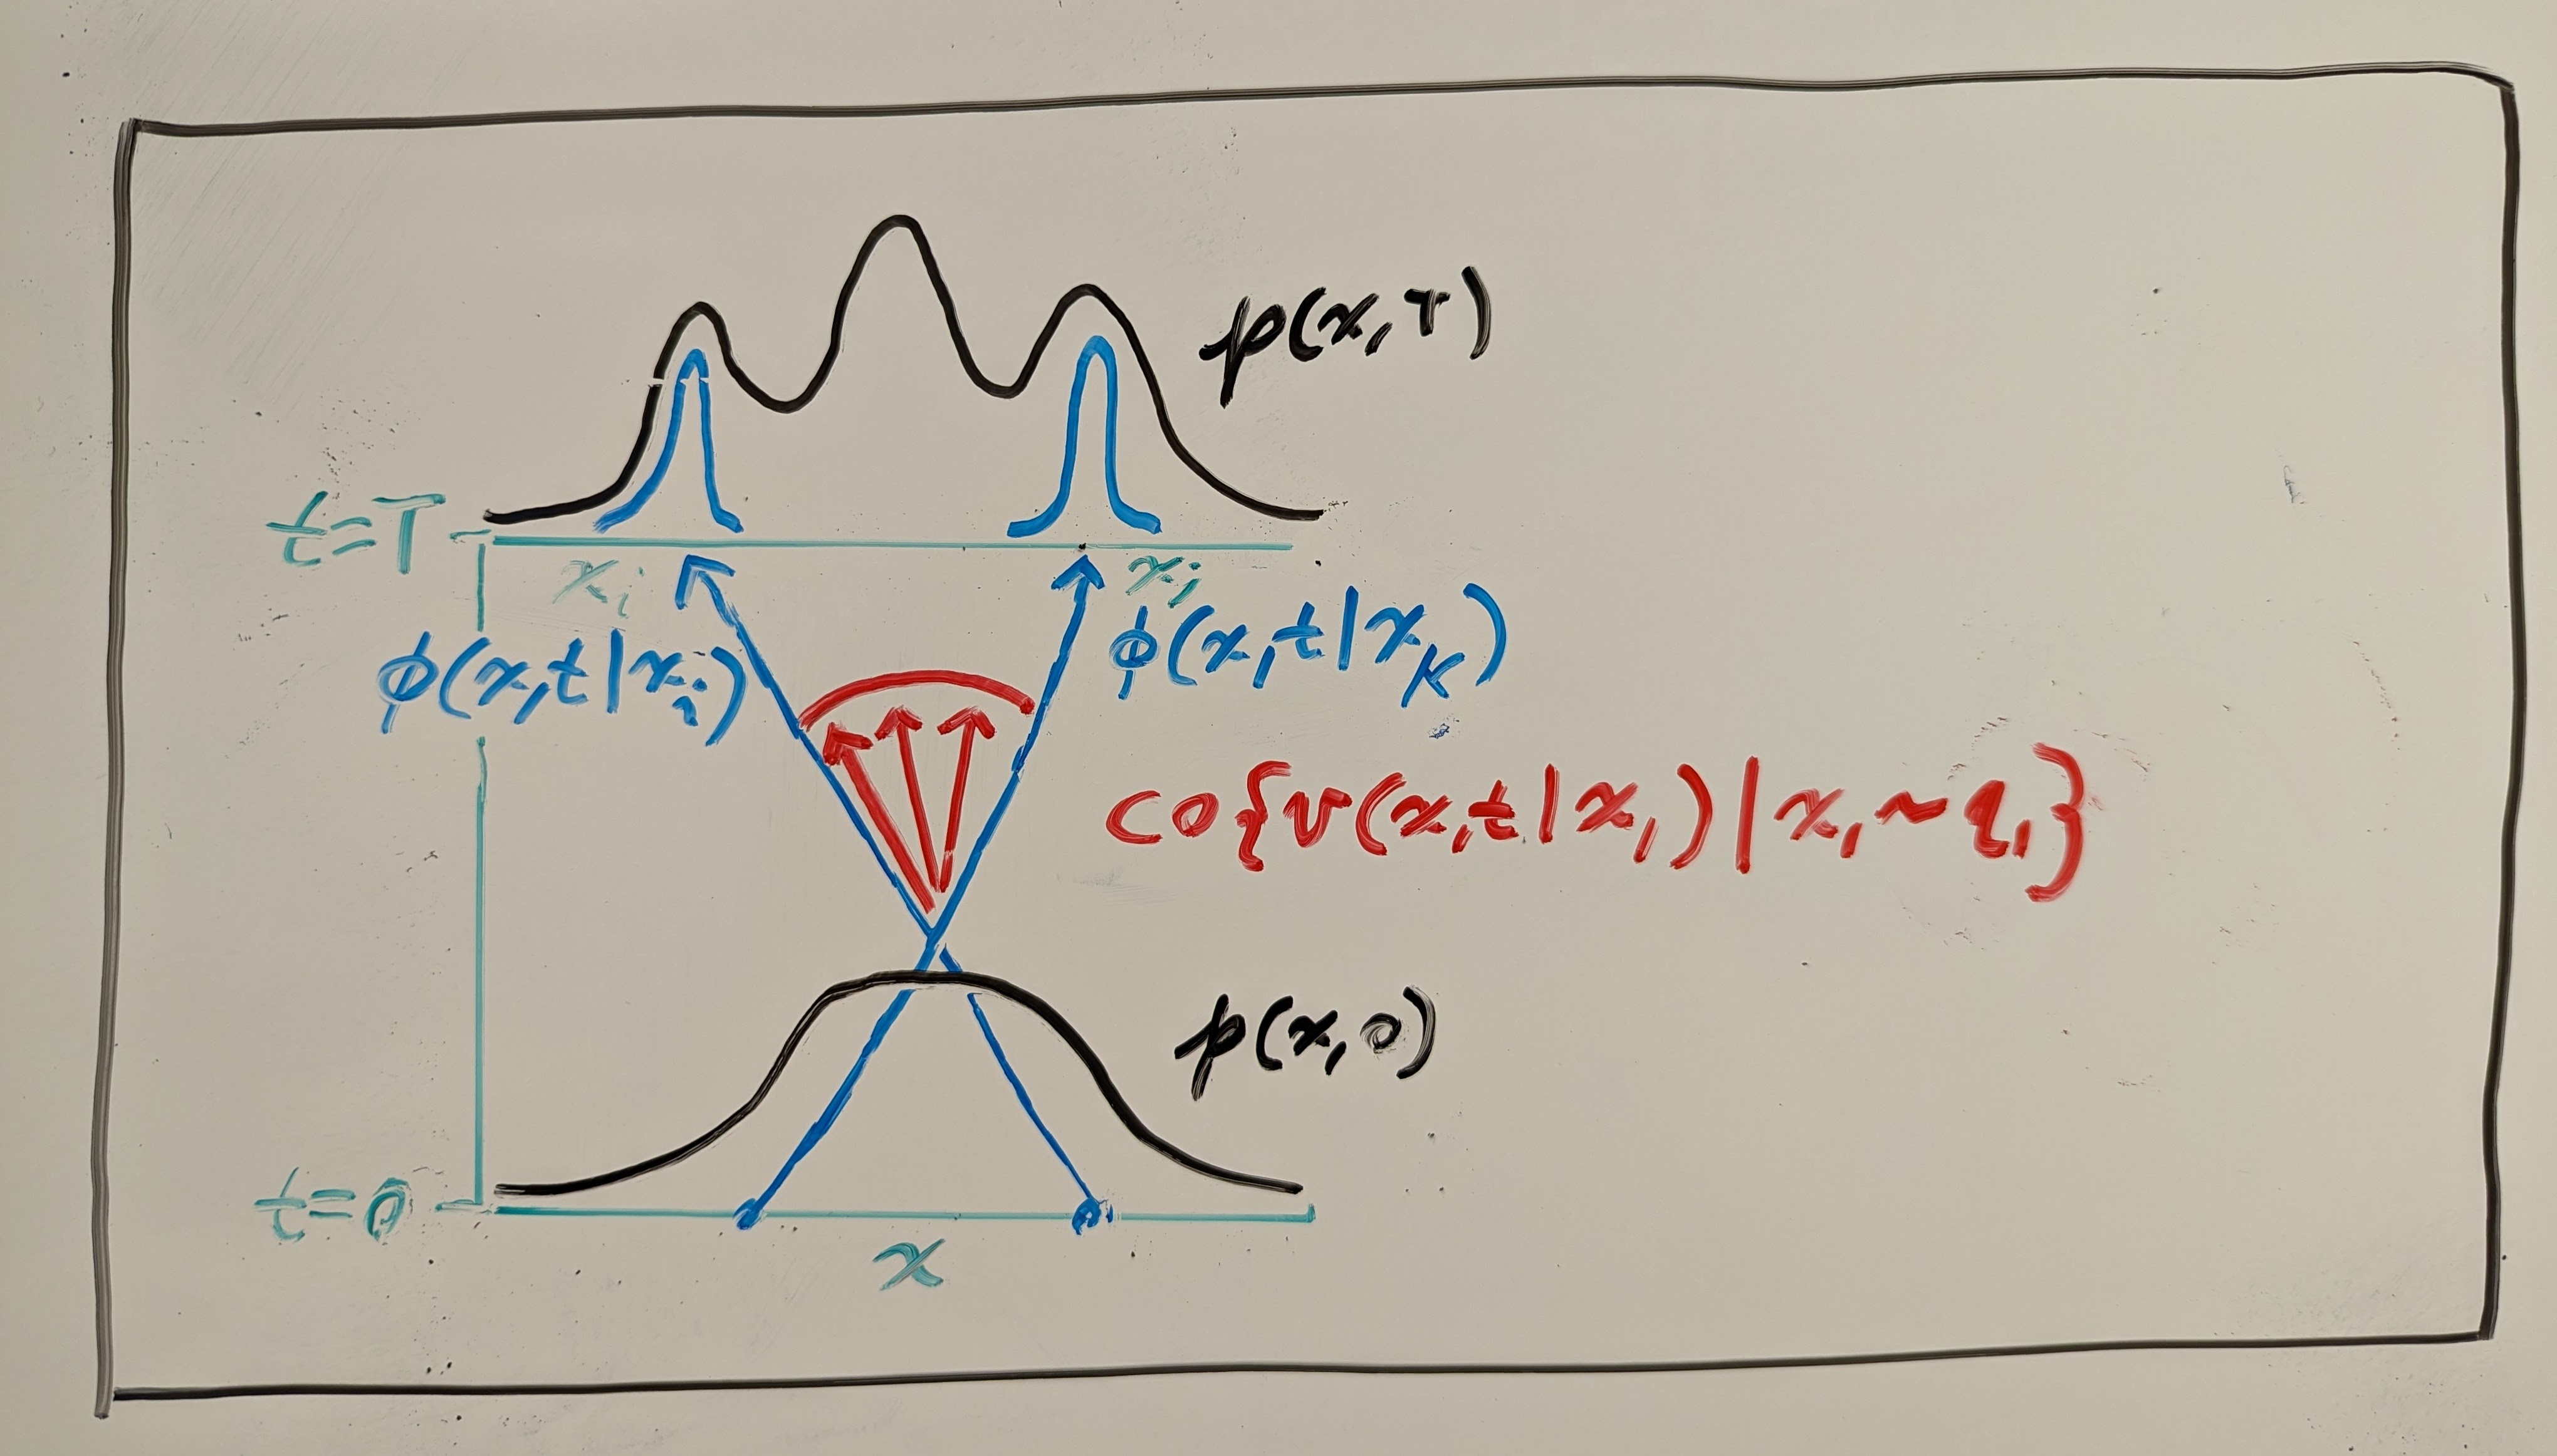 p(x,T)
t=T
x_i
x_j
ϕ(x,t|x_i)
ϕ(x,t|x_k)
co{v(x,t|x_1)|x_1~q_1}
p(x,0)
t=0
x